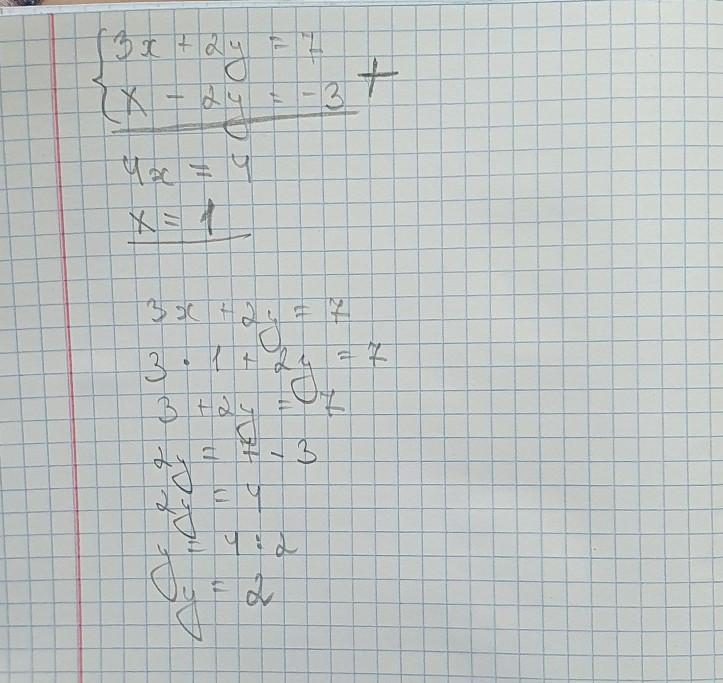 3x + 2y = 7
x - 2y = -3 +
4x = 4
x = 1
3x + 2y = 7
3 · 1 + 2y = 7
3 + 2y = 7
2y = 7 - 3
2y = 4
y = 4 : 2
y = 2